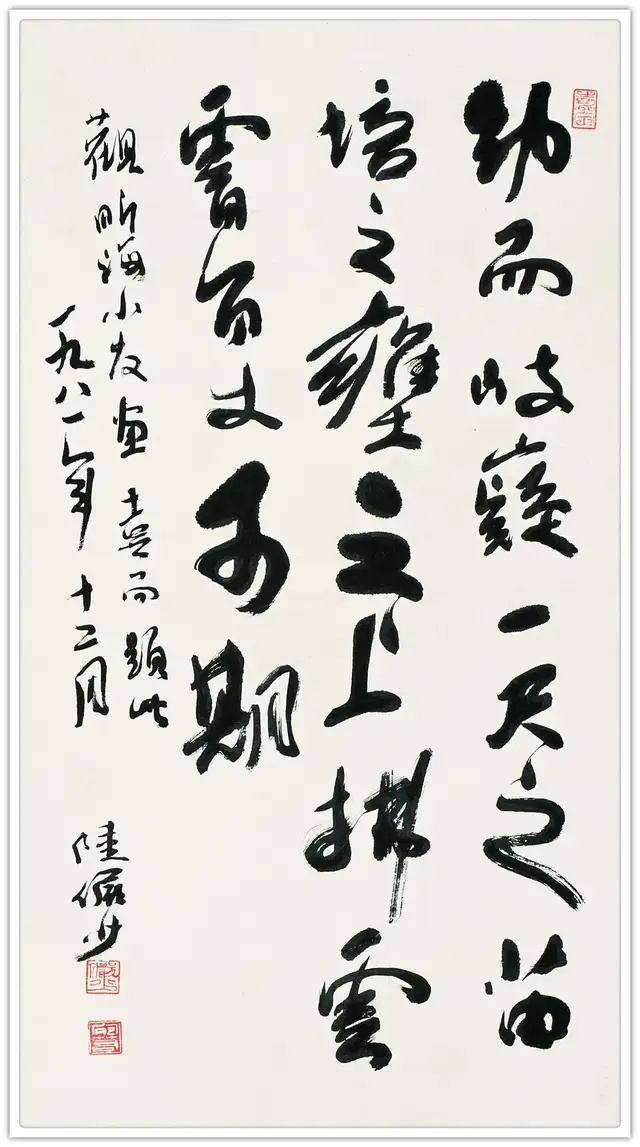 幼而岐嶷一尺之苗
培之壅之上拂雲
霄百丈可期
觀昕海小友畫喜而題此
一九八一年十二月
陸儼少